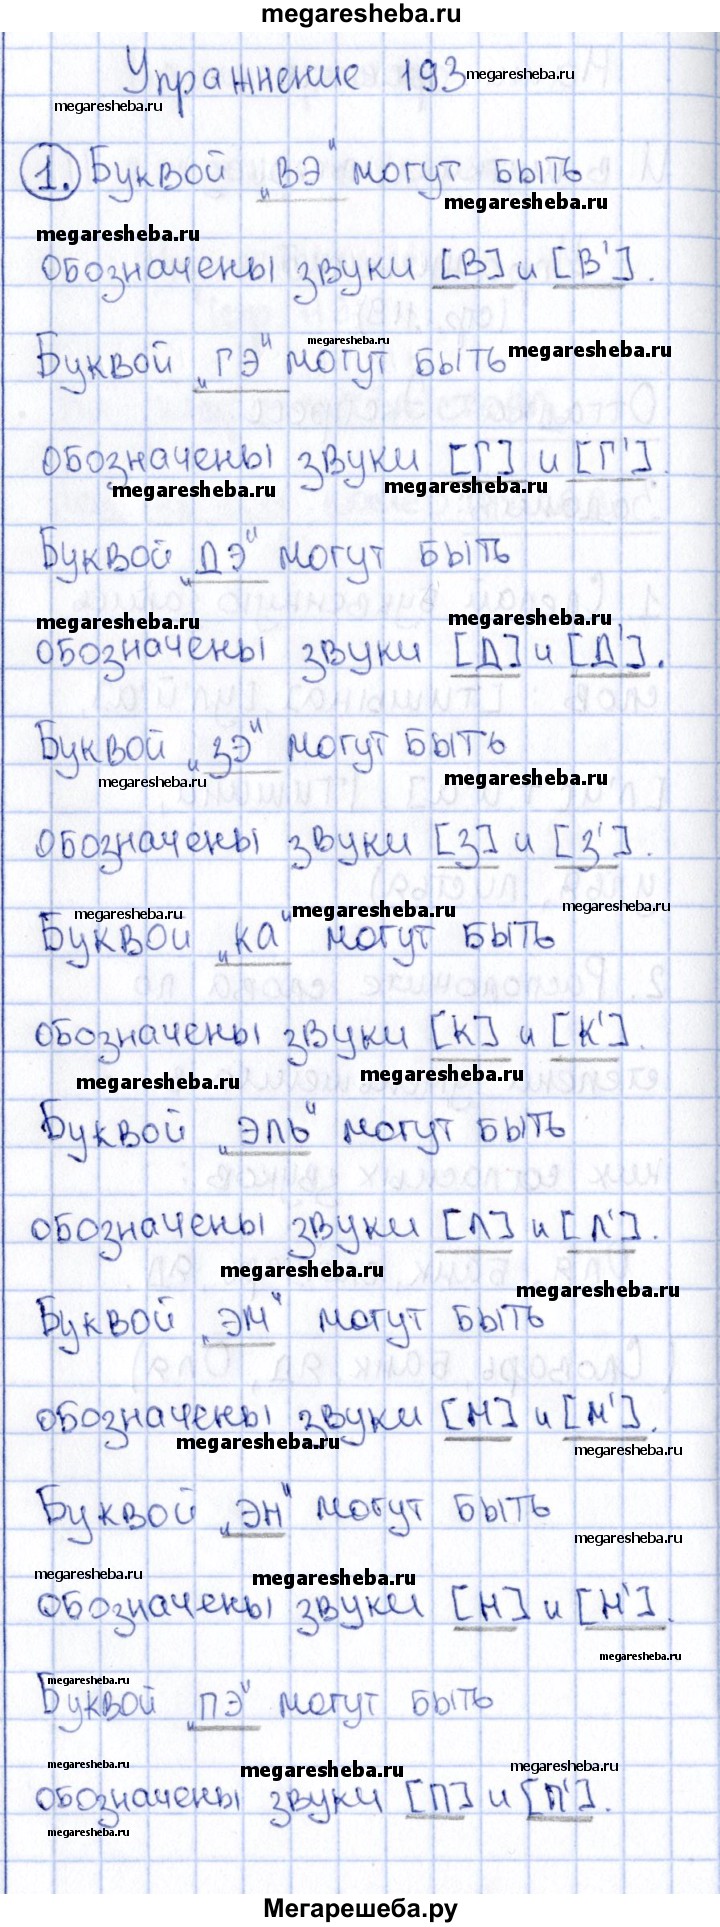 megaresheba.ru
Упражнение 193
megaresheba.ru
megaresheba.ru
1. Буквой „ВЭ“ могут быть
megaresheba.ru
megaresheba.ru
обозначены звуки [В] и [В'].
megaresheba.ru
megaresheba.ru
Буквой „ГЭ“ могут быть
обозначены звуки [Г] и [Г'].
megaresheba.ru
megaresheba.ru
Буквой „ДЭ“ могут быть
megaresheba.ru
megaresheba.ru
обозначены звуки [Д] и [Д'].
Буквой „зЭ“ могут быть
megaresheba.ru
megaresheba.ru
обозначены звуки [з] и [з'].
megaresheba.ru
megaresheba.ru
megaresheba.ru
Буквой „ка“ могут быть
обозначены звуки [к] и [к'].
megaresheba.ru
megaresheba.ru
Буквой „эль“ могут быть
обозначены звуки [л] и [л'].
megaresheba.ru
megaresheba.ru
Буквой „ЭМ“ могут быть
обозначены звуки [м] и [м'].
megaresheba.ru
megaresheba.ru
Буквой „ЭН“ могут быть
megaresheba.ru
megaresheba.ru
megaresheba.ru
обозначены звуки [н] и [н'].
megaresheba.ru
megaresheba.ru
Буквой „ПЭ“ могут быть
megaresheba.ru
megaresheba.ru
megaresheba.ru
обозначены звуки [П] и [П'].
megaresheba.ru
Мегарешеба.ру